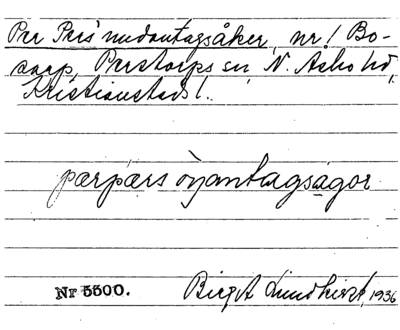 Per Pers' undantagsåker, nr 1 Bo-
sarp, Perstorps sn, N. Åsbo hd,
Kristianstads l.
pærpærs öjantagságor
Nr 5500.
Birgit Lundkvist, 1936